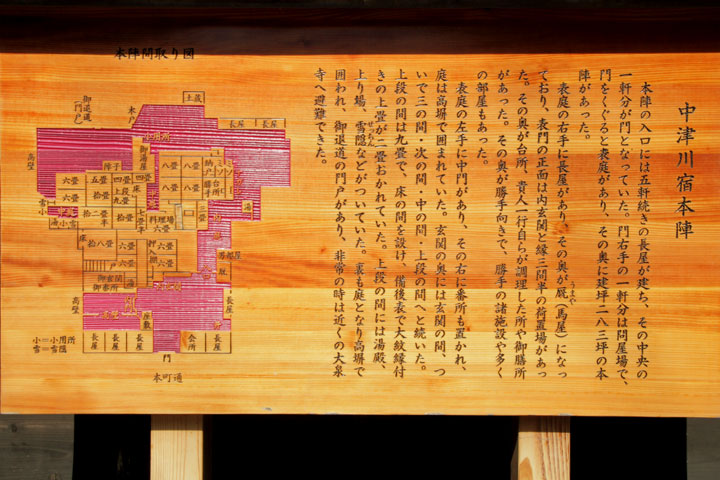 中津川宿本陣
本陣の入口には五軒続きの長屋が建ち、その中央の
一軒分が門となっていた。門右手の一軒分は問屋場で、
門をくぐると表庭があり、その奥に建坪二八三坪の本
陣があった。
表庭の右手に長屋があり、その奥が厩(馬屋)になっ
うまや
ており、表門の正面は内玄関と縁三間半の荷置場があっ
た。その奥が台所、貴人一行自らが調理した所や御膳所
があった。その奥が勝手向きで、勝手の諸施設や多く
の部屋もあった。
表庭の左手に中門があり、その右に番所も置かれ、
庭は高塀で囲まれていた。玄関の奥には玄関の間、つ
いで三の間・次の間・中の間・上段の間へと続いた。
上段の間は九畳で、床の間を設け、備後表で大紋縁付
きの上畳が二畳おかれていた。上段の間には湯殿、
上り場、雪隠などがついていた。裏も庭となり高塀で
せっちん
囲われ、御退道の門戸があり、非常の時は近くの大泉
寺へ避難できた。
本陣間取り図
土蔵
御退道
(門戸)
木戸
長屋
長屋
高壁
御湯屋
障子
六畳
五畳
四畳
四畳
八畳
八畳
八畳
八畳
納戸
勝手
台所
六畳
拾畳
上段
九畳
床
雪
小
湯
湯
小
雪
拾二畳
半
拾畳
七畳
料理場
六畳
口
二畳
床
拾八畳
六畳
六畳
押
六畳
六畳
御玄関
御番所
湯
高壁
長屋
長屋
長屋
座敷
門
会所
長屋
長屋
小=小用所
雪=雪隠
本町通